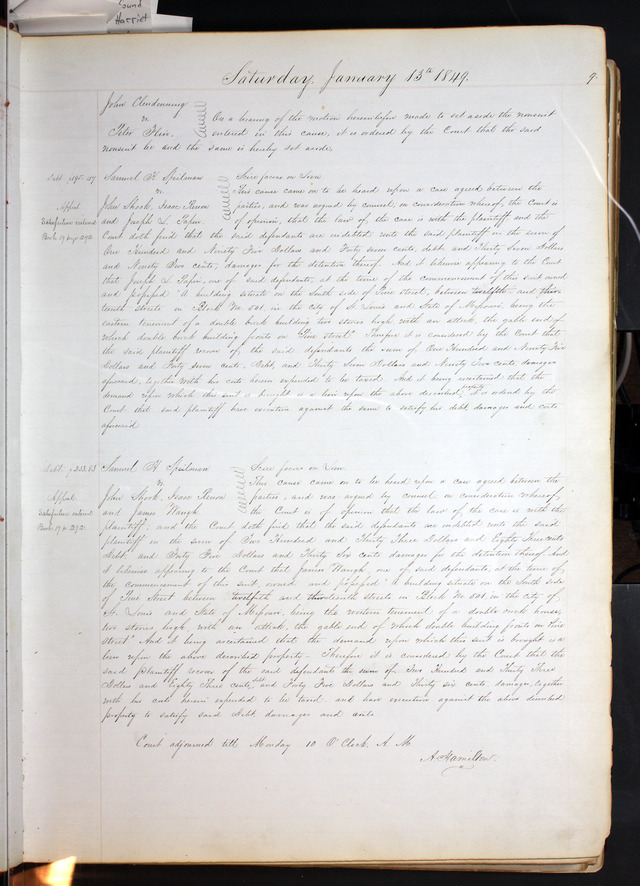 ound
Harriet
Saturday, January 13th 1849.
9
John Clendenning
vs
Peter Flin,
On a hearing of the motion heretofore made to set aside the nonsuit
entered in this cause, it is ordered by the Court that the said
nonsuit be and the same is hereby set aside.
Debt $195.47
Appeal
Satisfaction entered
Book 19 page 292
Samuel H Spilman
vs
John Shook, Isaac
and Joseph L.
Scire facias on Lien
This cause came on to be heard upon a case agreed between the
parties, and was argued by counsel, on consideration whereof, the Court is
of opinion, that the law of the case is with the plaintiff and the
Court doth find that the said defendants are indebted unto the said plaintiff in the sum of
One Hundred and Ninety Five Dollars and Forty seven cents, debt and Thirty Seven Dollars
and Ninety Two cents, damages for the detention thereof. And it likewise appearing to the Court
that Joseph L. one of said defendants, at the time of the commencement of this suit owned
and possessed "A building situate on the South side of Pine street, between twelfth and thir-
teenth streets in Block No 501, in the city of St Louis and State of Missouri, being the
eastern tenement of a double brick building two stories high with an attick, the gable end of
which double brick building fronts on Pine street" Therefore it is considered by the Court that
the said plaintiff recover of the said defendants the sum of One Hundred and Ninety Five
Dollars and Forty seven cents, Debt, and Thirty Seven Dollars and Ninety Two cents, damages
aforesaid, together with his costs herein expended to be taxed. And it being ascertained that the
demand upon which this suit is brought is a lien upon the above described property, it is ordered by the
Court that said plaintiff have execution against the same to satisfy his debt, damages and costs
aforesaid
Debt $233.83
Appeal
Satisfaction entered
Book 19 p. 292
Samuel H Spilman
vs
John Shook, Isaac
and James Waugh
Scire facias on Lien
This cause came on to be heard upon a case agreed between the
parties, and was argued by counsel, on consideration whereof,
the Court is of opinion that the law of the case is with the
plaintiff; and the Court doth find that the said defendants are indebted unto the said
plaintiff in the sum of Two Hundred and Thirty Three Dollars and Eighty Three cents
Debt and Forty Five Dollars and Thirty Six cents damages for the detention thereof And
it likewise appearing to the Court that James Waugh, one of said defendants, at the time of
the commencement of this suit owned and possessed "A building situate on the South side
of Pine Street between twelfth and thirteenth streets in Block No 501 in the city of
St. Louis and State of Missouri, being the western tenement of a double brick house,
two stories high, with an attick, the gable end of which double building fronts on Pine
street" And it being ascertained that the demand upon which this suit is brought is a
lien upon the above described property. Therefore it is considered by the Court that the
said Plaintiff recover of the said defendants the sum of Two Hundred and Thirty Three
Dollars and Eighty Three cents, debt and Forty Five Dollars and Thirty six cents damages, together
with his costs herein expended to be taxed. and have execution against the above described
property to satisfy said Debt, damages and costs
Court adjourned till Monday 10 O'Clock, A. M.
A. Hamilton.